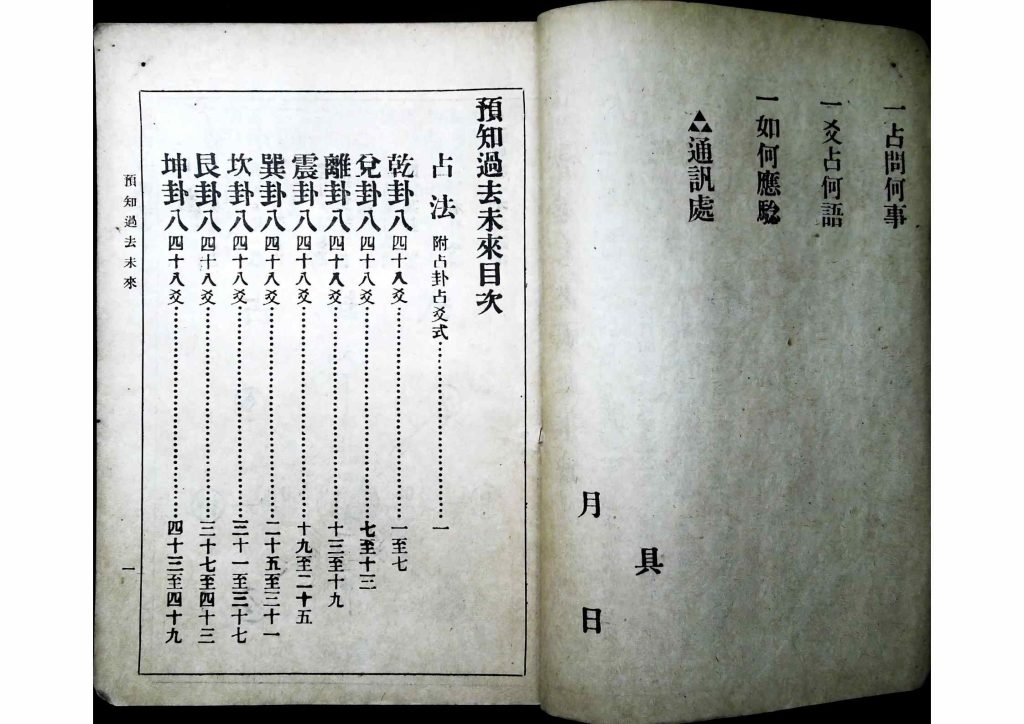 一占問何事
一爻占何語
一如何應驗
通訊處
具
月 日
預知過去未來目次
占法 附占卦占爻式 一
乾卦八 四十八爻 一至七
兌卦八 四十八爻 七至十三
離卦八 四十八爻 十三至十九
震卦八 四十八爻 十九至二十五
巽卦八 四十八爻 二十五至三十一
坎卦八 四十八爻 三十一至三十七
艮卦八 四十八爻 三十七至四十三
坤卦八 四十八爻 四十三至四十九
預知過去未來
一